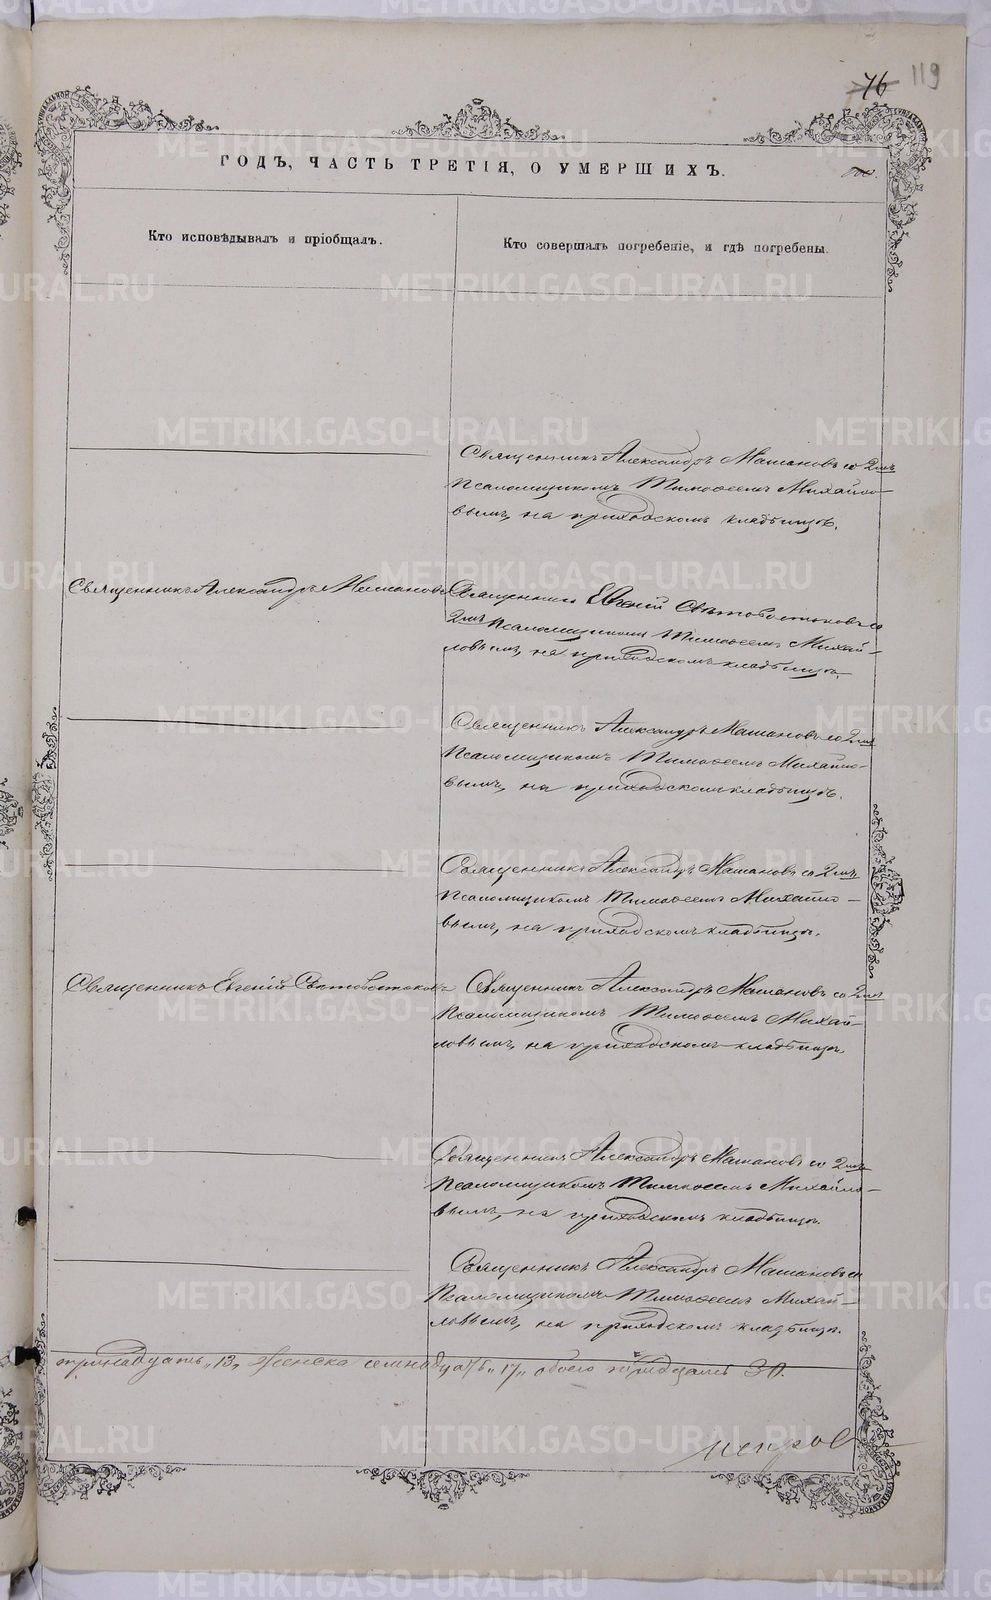 76 119
ГОДЪ, ЧАСТЬ ТРЕТІЯ, О УМЕРШИХЪ.
Кто исповѣдывалъ и пріобщалъ.
Кто совершалъ погребеніе, и гдѣ погребены.
Священникъ Александръ Машановъ со 2мъ
Псаломщикомъ Тимоѳеемъ Михайло-
вымъ, на приходскомъ кладбищѣ.
Священникъ Александръ Машановъ
Священникъ Евгеній Свѣтовостоковъ со
2мъ Псаломщикомъ Тимоѳеемъ Михай-
ловымъ, на приходскомъ кладбищѣ.
Священникъ Александръ Машановъ со 2мъ
Псаломщикомъ Тимоѳеемъ Михайло-
вымъ, на приходскомъ кладбищѣ.
Священникъ Александръ Машановъ со 2мъ
Псаломщикомъ Тимоѳеемъ Михайло-
вымъ, на приходскомъ кладбищѣ.
Священникъ Евгеній Свѣтовостоковъ
Священникъ Александръ Машановъ со 2мъ
Псаломщикомъ Тимоѳеемъ Михай-
ловымъ, на приходскомъ кладбищѣ.
Священникъ Александръ Машановъ со 2мъ
Псаломщикомъ Тимоѳеемъ Михайло-
вымъ, на приходскомъ кладбищѣ.
Священникъ Александръ Машановъ со
Псаломщикомъ Тимоѳеемъ Михай-
ловымъ, на приходскомъ кладбищѣ.
тринадцать „13„ женска семнадцать „17„ обоего тридцать 30.
METRIKI.GASO-URAL.RU